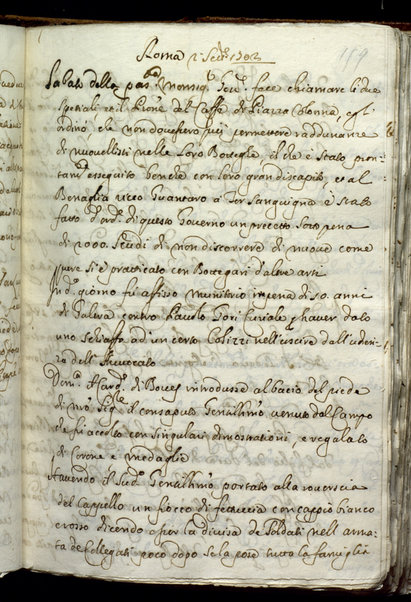 159
Roma 2 Sett.e 1702
Sabato della pas.ta Monsig.r Gov.e fece chiamare li due
speziali et il Pione del Caffè di Piazza Colonna, e gl'
ordinò, che non dovessero più permettere raddunanze
di nuovellisti nelle loro Botteghe il che è stato pron-
tam.te esseguito benche con loro gran discapito, et al
Bonaglia vicco Guantaro à Tor Sanguigna è stato
fatto d'ord.e di questo Governo un precetto sotto pena
di 2000. scudi di non discorrere di nuove come
pure si è pratticato con Bottegari d'altre arti
Ind.o giorno fu affisso monitorio in pena di 10. anni
di Galera contro Paolo Gori Curiale p haver dato
uno schiaffo ad un certo Colizzi nell'uscire dall'udien-
za dell'Avvocato
Dom.ca Il Card.l di Boves introdusse al bacio del piede
di N.ro Sig.re il consaputo Gentilhuomo venuto dal Campo
e fù accolto con singulari dimostrationi, e regalato
di corone e medaglie
Havendo il sud.o Gentilhuomo portato alla rovescia
del Cappello un fiocco di fettuccia con cappio bianco
e rosso dicendo esser la divisa de soldati nell'arma-
ta de Collegati poco dopo se la pose tutta la famiglia